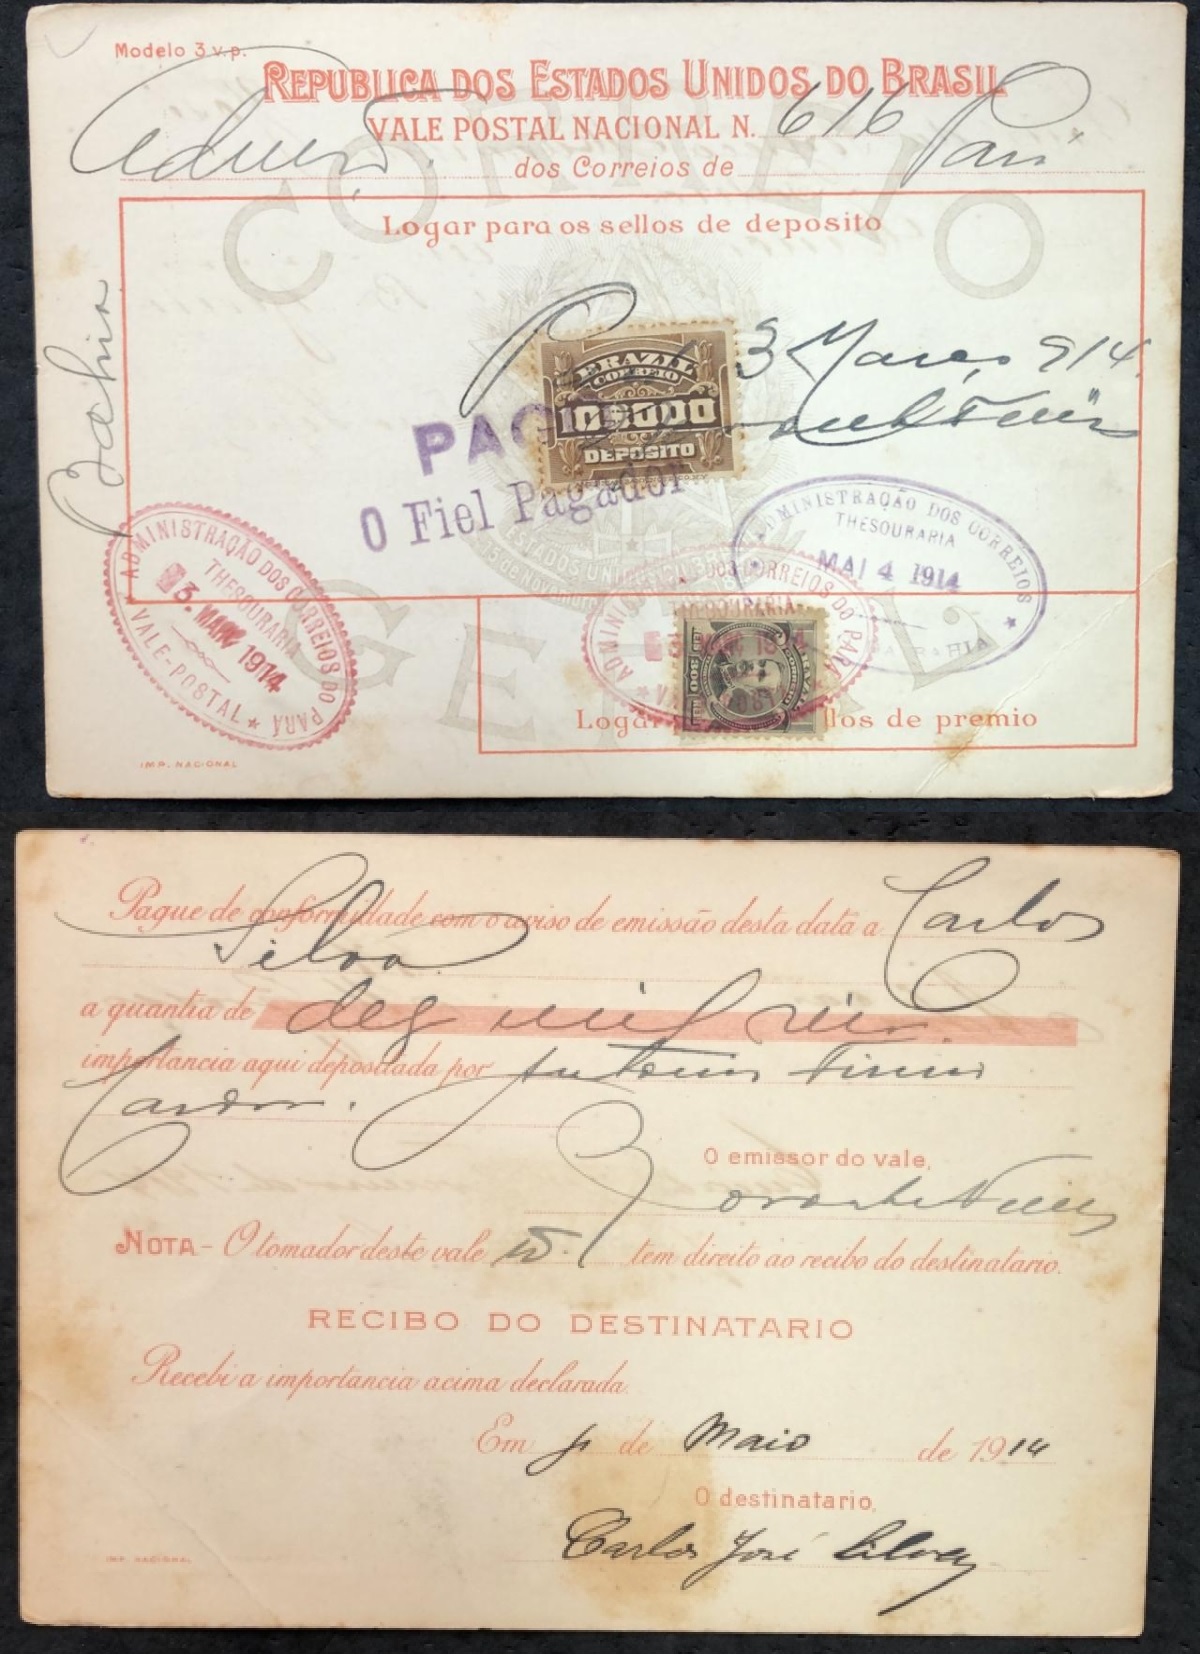 Modelo 3 v.p.
REPUBLICA DOS ESTADOS UNIDOS DO BRASIL
VALE POSTAL NACIONAL N. 616
dos Correios de Pará
Logar para os sellos de deposito
Bahia
3 Março 914.
BRAZIL
CORREIO
10$000
DEPOSITO
PAGO
O Fiel Pagador
ADMINISTRAÇÃO DOS CORREIOS
THESOURARIA
MAI 4 1914
BAHIA
ADMINISTRAÇÃO DOS CORREIOS DO PARÁ
THESOURARIA
3. MAR 1914
VALE-POSTAL
ADMINISTRAÇÃO DOS CORREIOS DO PARÁ
THESOURARIA
3 MAR 1914
VALE-POSTAL
300
Logar para os sellos de premio
CORREIO
GERAL
IMP. NACIONAL
Pague de conformidade com o aviso de emissão desta data a Carlos
Silva
a quantia de dez mil reis
importancia aqui depositada por Antonio Firmino
Cardoso.
O emissor do vale,
NOTA - O tomador deste vale tem direito ao recibo do destinatario.
RECIBO DO DESTINATARIO
Recebi a importancia acima declarada.
Em 4 de Maio de 1914
O destinatario,
Carlos José Silva
IMP. NACIONAL